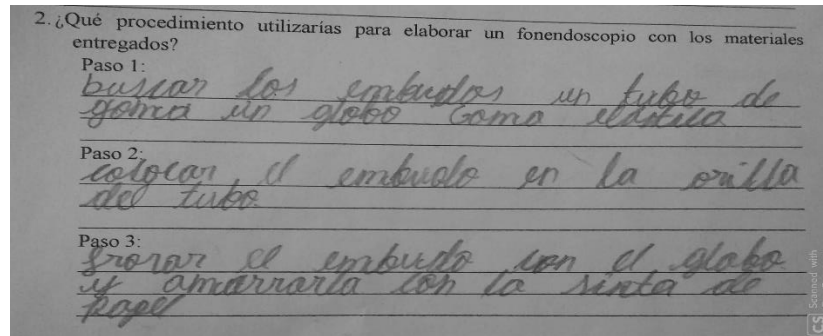 2. ¿Qué procedimiento utilizarías para elaborar un fonendoscopio con los materiales
entregados?
Paso 1:
buscar los embudos un tubo de
goma un globo Goma elastica
Paso 2:
colocar el embudo en la orilla
del tubo.
Paso 3:
frorar el embudo con el globo
y amarrarla con la sinta de
papel
CS Scanned with